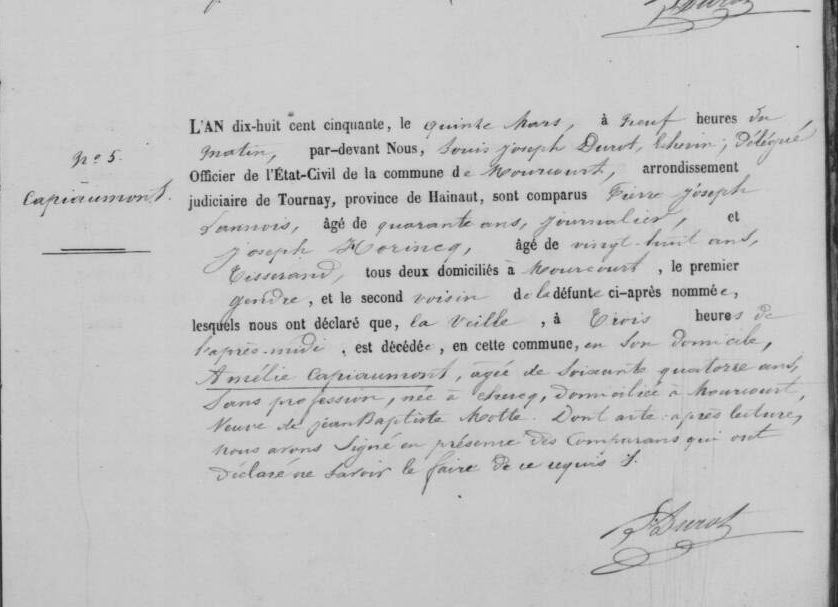 Durot
N° 5.
Capiaumont.
L'AN dix-huit cent cinquante, le quinze Mars, à neuf heures du
matin, par-devant Nous, Louis Joseph Durot, Echevin, Délégué
Officier de l'État-Civil de la commune de Mourcourt, arrondissement
judiciaire de Tournay, province de Hainaut, sont comparus Pierre Joseph
Lannois, âgé de quarante ans, journalier, et
Joseph Horincq, âgé de vingt-huit ans,
Tisserand, tous deux domiciliés à Mourcourt, le premier
gendre, et le second voisin de la défunte ci-après nommée,
lesquels nous ont déclaré que, la veille, à Trois heures de
l'après-midi, est décédée, en cette commune, en son domicile,
Amélie Capiaumont, agée de Soixante quatorze ans,
Sans profession, née à , domiciliée à Mourcourt,
Veuve de Jean Baptiste Motte. Dont acte: après lecture,
nous avons Signé en présence des Comparans qui ont
Déclaré ne Savoir le faire de ce requis.
Durot